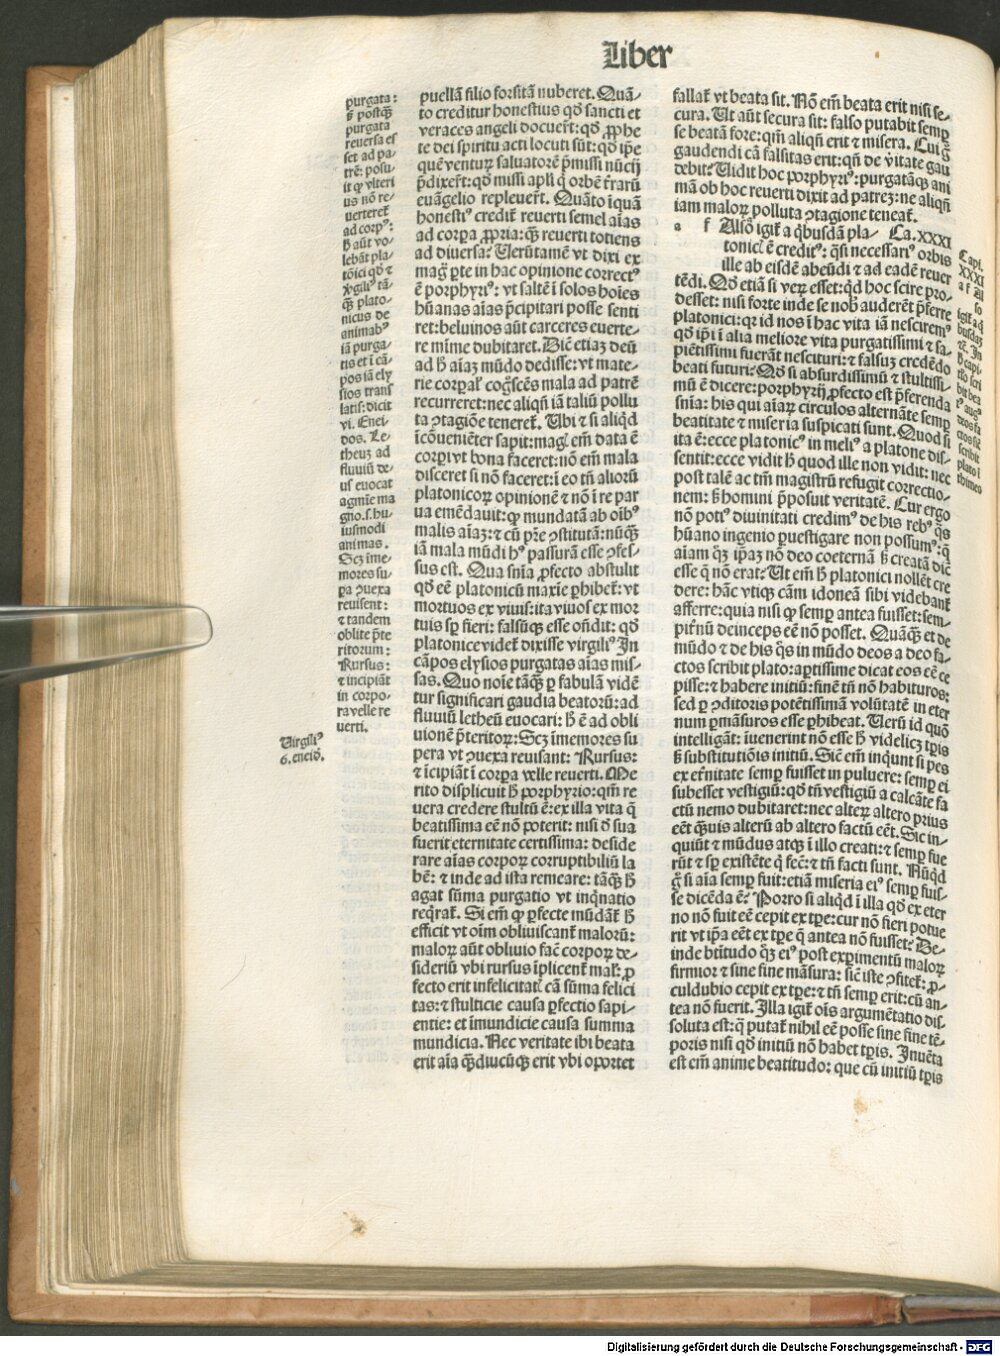 Liber
purgata:
ꝙ postqȝ
purgata
reuersa es
set ad pa-
trē: posu-
it ꝙ vlteri
us nō re-
uerteret᷑
ad corpꝰ:
h̄ aūt vo-
lebāt pla-
tōici qd̄ ⁊
v̓giliꝰ tā-
qȝ plato-
nicus de
animabꝰ
iā purga-
tis et ī cā-
pos iā ely
sios trans
latis: dicit
vi. Enei-
dos. Le-
theuȝ ad
fluuiū de-
us euocat
agmīe ma
gno.s.hu-
iusmodi
animas.
Scȝ īme-
mores su-
ꝑa ↄuexa
reuisent:
⁊ tandem
oblite p̄te
ritorum:
Rursus:
⁊ incipiāt
in corpo-
ra velle re
uerti.
Virgiliꝰ
6. eneid̄.
puellā filio forsitā nuberet. Quā-
to creditur honestius qd̄ sancti et
veraces angeli docuer̄t: qd̄ ꝓphe
te dei spiritu acti locuti sūt: qd̄ ip̄e
quē venturꝫ saluatorē p̄missi nūcij
p̄dixer̄t: qd̄ missi apl̄i q̇ orbē t̄rarū
euāgelio repleuer̄t. Quāto īquā
honestiꝰ credit᷑ reuerti semel aīas
ad corꝑa ꝓpria: qȝ reuerti totiens
ad diuersa? Uerūtamē vt dixi ex
mag᷑ ꝑte in hac opinione correctꝰ
ē porphyriꝰ: vt saltē ī solos hoīes
hūanas aīas p̄cipitari posse senti
ret: beluinos aūt carceres euerte-
re mīme dubitaret. Dic̄ etiaȝ deū
ad h̄ aīaȝ mūdo dedisse: vt mate-
rie corꝑal᷑ cog᷑sces mala ad patrē
recurreret: nec aliqn̄ iā taliū pollu
ta ↄtagiōe teneret᷑. Ubi ⁊ si aliqd̄
īcōueniēter sapit: mag᷑ em̄ data ē
corꝑi vt bona faceret: nō em̄ mala
disceret si nō faceret: ī eo tn̄ alioꝝ
platonicoꝝ opinionē ⁊ nō ī re par
ua emēdauit: ꝙ mundatā ab oīb̄ꝰ
malis aīaȝ: ⁊ cū pr̄e ↄstitutā: nūqȝ
iā mala mūdi hꝰ passurā esse ↄfes-
sus est. Qua sn̄ia ꝓfecto abstulit
qd̄ eē platonicū maxīe ꝑhibet᷑: vt
mortuos ex viuis: ita viuos ex mor
tuis sꝑ fieri: falsūqȝ esse on̄dit: qd̄
platonice videt᷑ dixisse virgiliꝰ In
cāpos elysios purgatas aīas mis-
sas. Quo noīe tāqȝ ꝑ fabulā vidē
tur significari gaudia beatorū: ad
fluuiū letheū euocari: h̄ ē ad obli
uionē p̄teritoꝝ: Scȝ īmemores su
pera vt ↄuexa reuisant: Rursus:
⁊ īcipiāt ī corꝑa velle reuerti. Me
rito displicuit h̄ porphyrio: qm̄ re
uera credere stultū ē: ex illa vita q̄
beatissima eē nō poterit: nisi d̄ sua
fuerit eternitate certissima: deside
rare aīas corpoꝝ corruptibiliū la
bē: ⁊ inde ad ista remeare: tāqȝ h̄
agat sūma purgatio vt inq̇natio
req̇rat᷑. Si em̄ ꝙ ꝑfecte mūdāt᷑ h̄
efficit vt oīm obliuiscant᷑ malorū:
maloꝝ aūt obliuio fac̄ corpoꝝ de-
sideriū vbi rursus īplicent᷑ mal᷑: ꝓ
fecto erit infelicitat᷑ cā sūma felici
tas: ⁊ stulticie causa ꝑfectio sapi-
entie: et īmundicie causa summa
mundicia. Nec veritate ibi beata
erit aīa qȝdiucūqȝ erit vbi oportet
fallat᷑ vt beata sit. Nō em̄ beata erit nisi se-
cura. Ut aūt secura sit: falso putabit semꝑ
se beatā fore: qm̄ aliqn̄ erit ⁊ misera. Cui g̊
gaudendi cā falsitas erit: qn̄ de v̓itate gau
debit? Uidit hoc porphyriꝰ: purgatāqȝ ani
mā ob hoc reuerti dixit ad patreȝ: ne aliqn̄
iam maloꝝ polluta ↄtagione teneat᷑.
a f Alsо̄ igit᷑ a q̇busdā pla- Ca.XXXI
tonic᷑ ē creditꝰ: q̄si necessariꝰ orbis
ille ab eisdē abeūdi ⁊ ad eadē reuer
tēdi. Qd̄ etiā si verꝫ esset: qd̄ hoc scire pro-
desset: nisi forte inde se nob̄ auderēt p̄ferre
platonici: qꝛ id nos ī hac vita iā nesciremꝰ
qd̄ ip̄i ī alia meliore vita purgatissimi ⁊ sa-
piētissimi fuerāt nescituri: ⁊ falsuȝ credēdo
beati futuri? Qd̄ si absurdissimū ⁊ stultissi-
mū ē dicere: porphyrij ꝓfecto est p̄ferenda
sn̄ia: his qui aīaꝝ circulos alternāte semꝑ
beatitate ⁊ miseria suspicati sunt. Quod si
ita ē: ecce platonicꝰ in meliꝰ a platone dis-
sentit: ecce vidit h̄ quod ille non vidit: nec
post talē ac tm̄ magistrū refugit correctio-
nem: s̄ homini p̄posuit veritatē. Cur ergo
nō potiꝰ diuinitati credimꝰ de his rebꝰ q̄s
hūano ingenio ꝑuestigare non possumꝰ: q̄
aīam qȝ ip̄aȝ nō deo coeternā s̄ creatā dic̄
esse q̄ nō erat? Ut em̄ h̄ platonici nollēt cre
dere: hāc vtiqȝ cām idoneā sibi videbant᷑
afferre: quia nisi ꝙ semꝑ antea fuisset: sem-
pit̄nū deinceps eē nō posset. Quāqȝ et de
mūdo ⁊ de his q̄s in mūdo deos a deo fa-
ctos scribit plato: aꝑtissime dicat eos eē ce
pisse: ⁊ habere initiū: finē tn̄ nō habituros:
sed ꝑ ↄditoris potētissimā volūtatē in eter
num ꝑmāsuros esse ꝑhibeat. Uerū id quō
intelligāt: iuenerint nō esse h̄ videlicȝ tꝑis
s̄ substitutiōis initiū. Sic̄ em̄ inqunt si pes
ex et̄nitate semꝑ fuisset in puluere: semꝑ ei
subesset vestigiū: qd̄ tn̄ vestigiū a calcāte fa
ctū nemo dubitaret: nec alterꝫ altero prius
eēt qȝuis alterū ab altero factū eēt. Sic in-
quiūt ⁊ mūdus atqȝ ī illo creati: ⁊ semꝑ fue
rūt ⁊ sꝑ existēte q̇ fec̄: ⁊ tn̄ facti sunt. Nūqd̄
g̊ si aīa semꝑ fuit: etiā miseria eiꝰ semꝑ fuis-
se dicēda ē? Porro si aliqd̄ ī illa qd̄ ex eter
no nō fuit eē cepit ex tꝑe: cur nō fieri potue
rit vt ip̄a eēt ex tꝑe q̄ antea nō fuisset? De-
inde bt̄itudo q̊ȝ eiꝰ post exꝑimentū maloꝝ
firmior ⁊ sine fine māsura: sic̄ iste ↄfitet᷑: ꝓ-
culdubio cepit ex tꝑe: ⁊ tn̄ semꝑ erit: cū an-
tea nō fuerit. Illa igit᷑ oīs argumētatio dis-
soluta est: q̄ putat᷑ nihil eē posse sine fine tē-
poris nisi qd̄ initiū nō habet tꝑis. Inuēta
est em̄ anime beatitudo: que cū initiū tꝑis
Capi.
XXXI
a f Al
so
igit᷑ a q̇
busdaȝ
⁊c̄. In
h̄ capi-
Digitalisierung gefördert durch die Deutsche Forschungsgemeinschaft - DFG